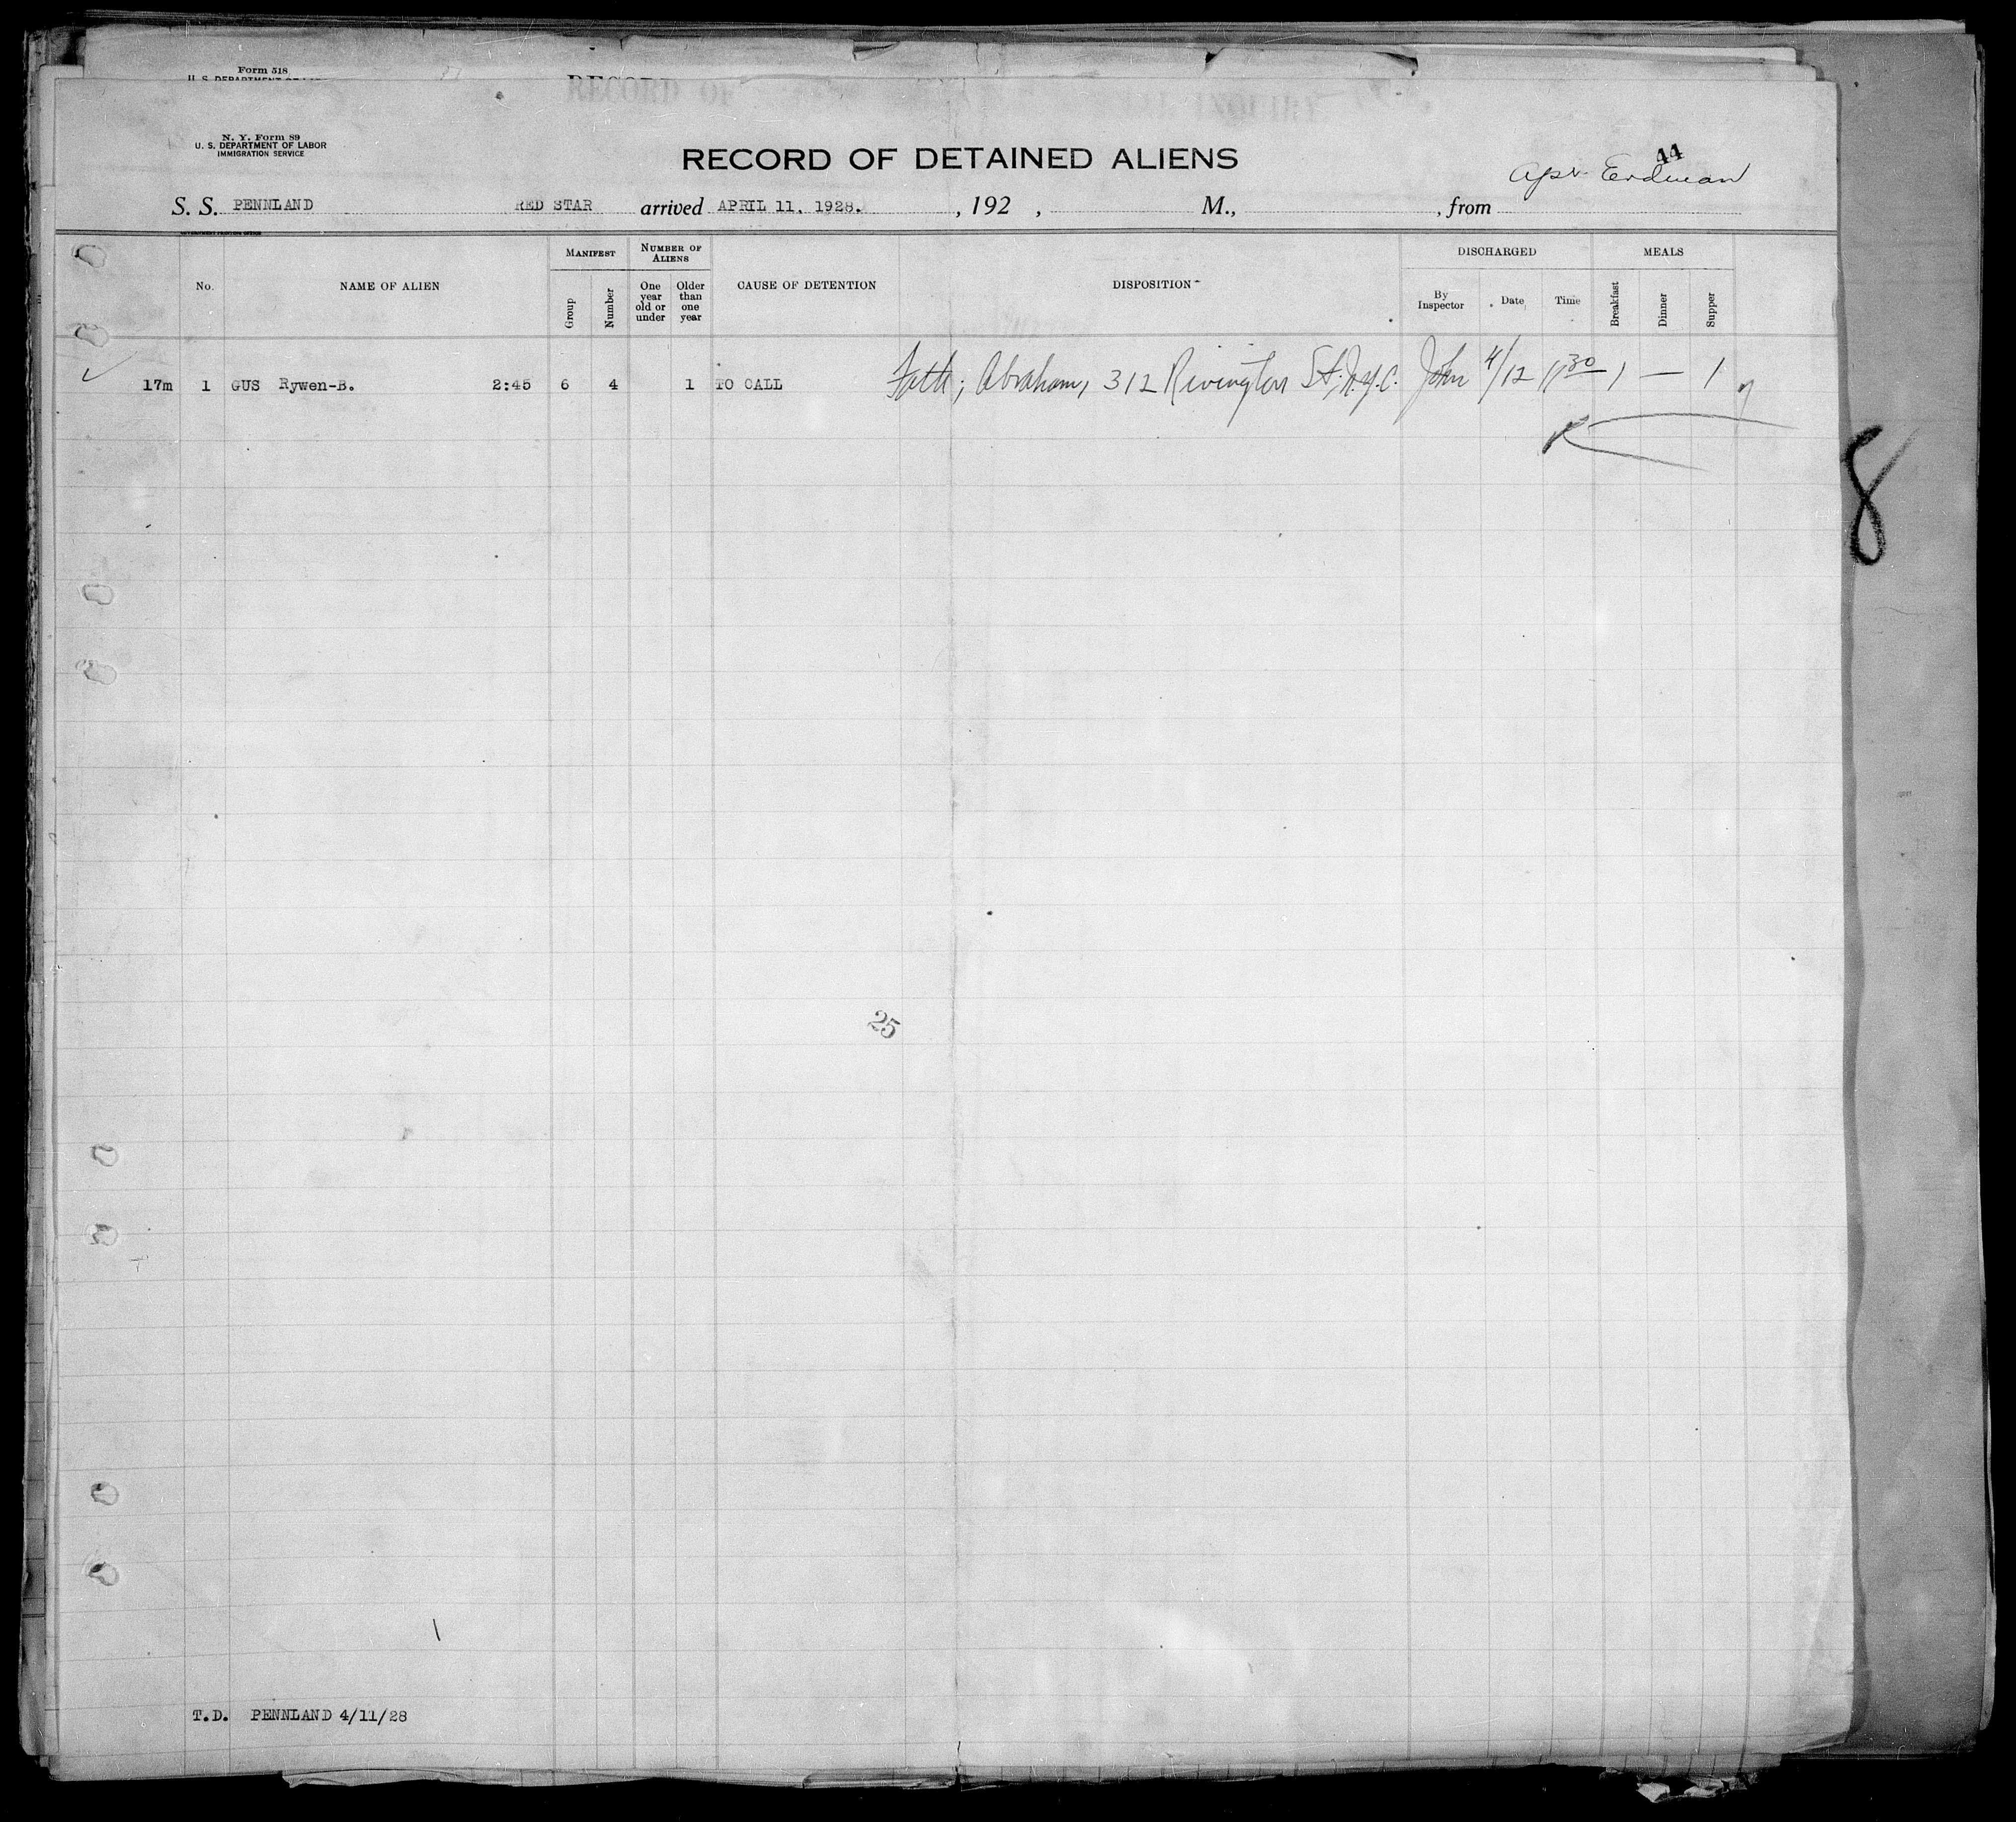 Form 518
RECORD OF INQUIRY
N. Y. Form 89
U. S. DEPARTMENT OF LABOR
IMMIGRATION SERVICE
RECORD OF DETAINED ALIENS
44
Erdman
S. S. PENNLAND RED STAR arrived APRIL 11, 1928. , 192 , M., , from
No. NAME OF ALIEN MANIFEST Group Number NUMBER OF ALIENS One year old or under Older than one year CAUSE OF DETENTION DISPOSITION DISCHARGED By Inspector Date Time MEALS Breakfast Dinner Supper
17m 1 GUS Rywen-B. 2:45 6 4 1 TO CALL Fath; Abraham, 312 Rivington St. N.Y.C. John 4/12 1130 1 — 1
8
25
T.D. PENNLAND 4/11/28